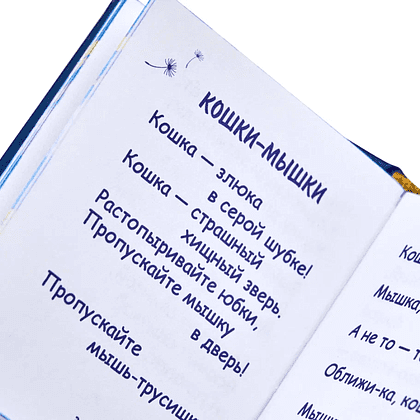 КОШКИ-МЫШКИ
Кошка — злюка
в серой шубке!
Кошка — страшный
хищный зверь.
Растопыривайте юбки,
Пропускайте мышку
в дверь!
Пропускайте
мышь-трусишк
Кош
Мышка,
А не то — т
Оближи-ка, ко
Мышк